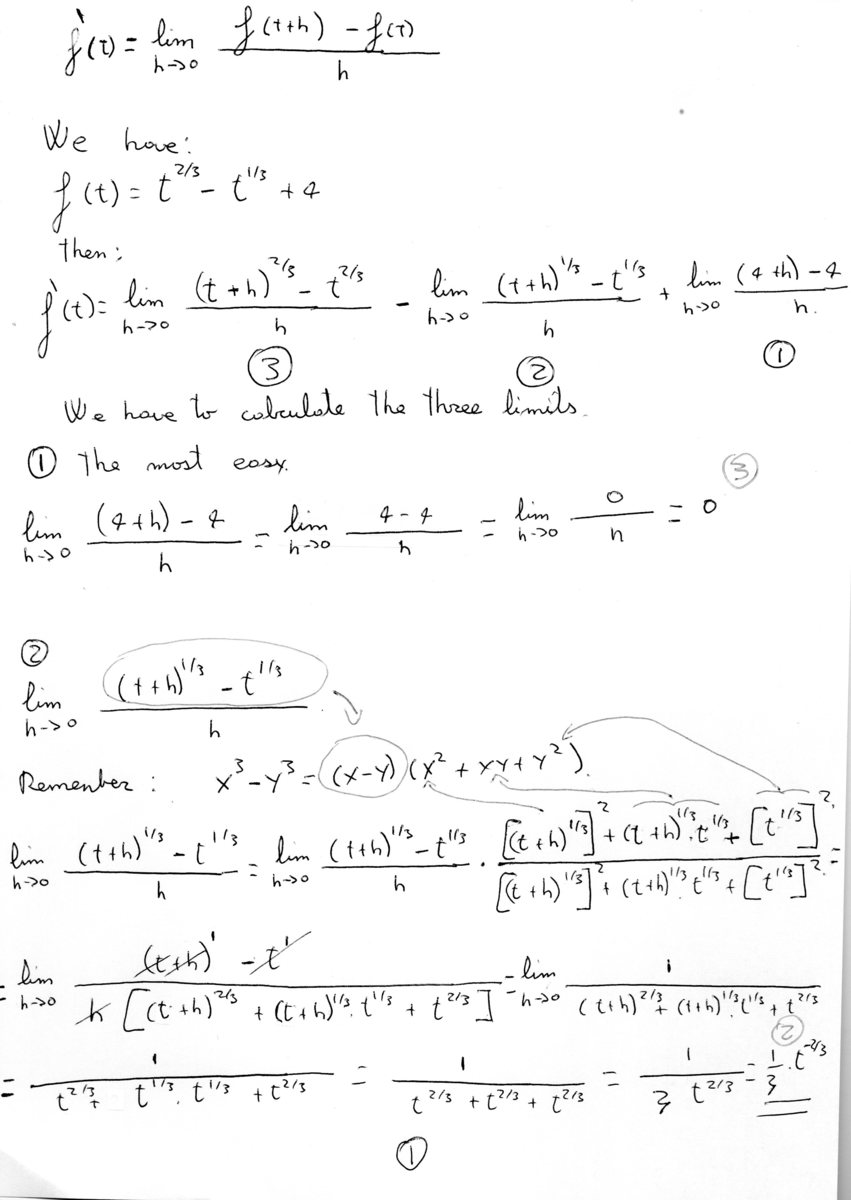 f`(t) = lim h->0 (f(t+h) - f(t)) / h
We have:
f(t) = t^2/3 - t^1/3 + 4
then:
f`(t) = lim h->0 ((t+h)^2/3 - t^2/3) / h - lim h->0 ((t+h)^1/3 - t^1/3) / h + lim h->0 ((4+h) - 4) / h.
③ ② ①
We have to calculate the three limits.
① The most easy.
lim h->0 ((4+h) - 4) / h = lim h->0 (4-4) / h = lim h->0 0 / h = 0 ③
②
lim h->0 ((t+h)^1/3 - t^1/3) / h
Remember: x^3 - y^3 = (x-y) (x^2 + xy + y^2).
lim h->0 ((t+h)^1/3 - t^1/3) / h = lim h->0 ((t+h)^1/3 - t^1/3) / h · ([(t+h)^1/3]^2 + (t+h)^1/3 . t^1/3 + [t^1/3]^2) / ([(t+h)^1/3]^2 + (t+h)^1/3 . t^1/3 + [t^1/3]^2) =
= lim h->0 ((t+h)^1 - t^1) / (h [(t+h)^2/3 + (t+h)^1/3 . t^1/3 + t^2/3]) = lim h->0 1 / ((t+h)^2/3 + (t+h)^1/3 . t^1/3 + t^2/3)
= 1 / (t^2/3 + t^1/3 . t^1/3 + t^2/3) = 1 / (t^2/3 + t^2/3 + t^2/3) = 1 / (3 t^2/3) = 1/3 . t^-2/3 ②
①